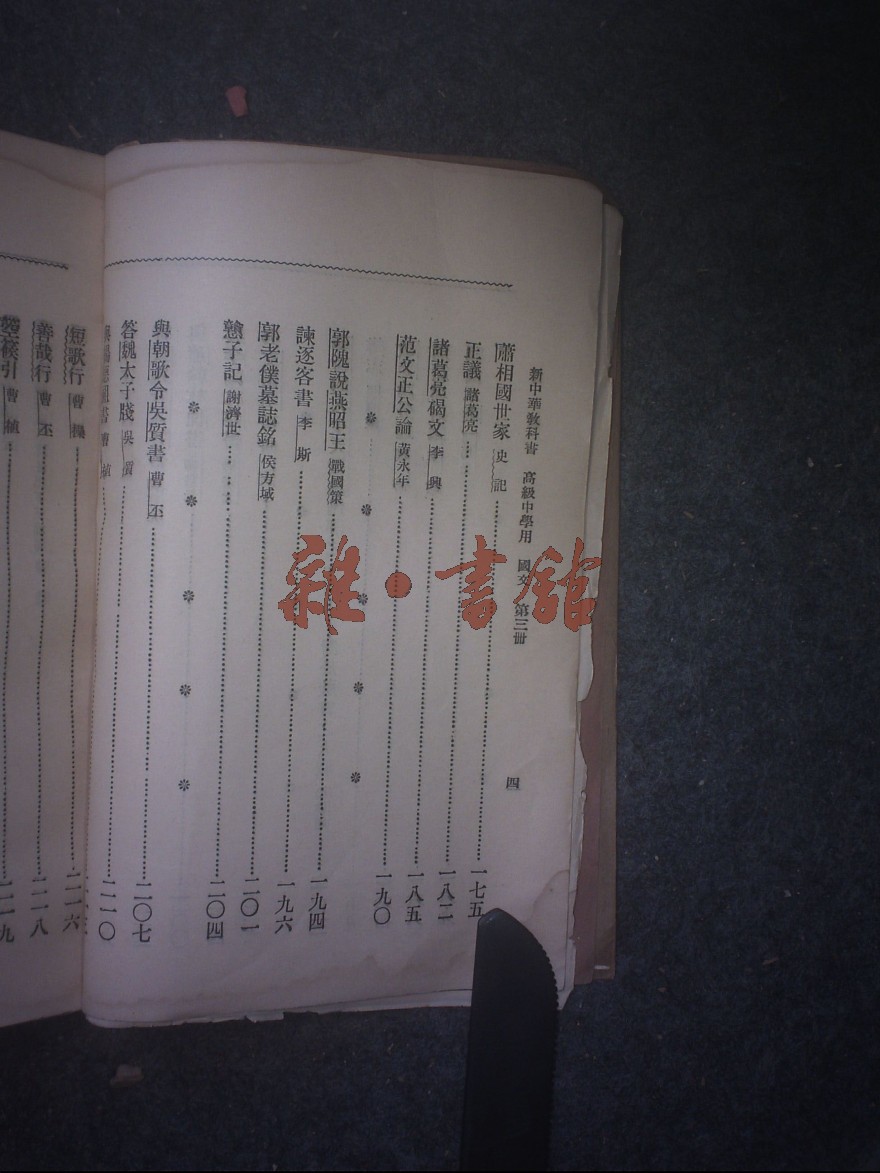 新中華教科書 高級中學用 國文 第三冊 四
蕭相國世家 史記 一七五
正議 諸葛亮 一八二
諸葛亮碣文 李興 一八五
范文正公論 黃永年 一九〇
郭隗說燕昭王 戰國策 一九四
諫逐客書 李斯 一九六
郭老僕墓誌銘 侯方域 二〇一
戇子記 謝濟世 二〇四
與朝歌令吳質書 曹丕 二〇七
答魏太子牋 吳質 二一〇
短歌行 曹操 二一六
善哉行 曹丕 二一八
箜篌引 曹植 二一九
雜·書館